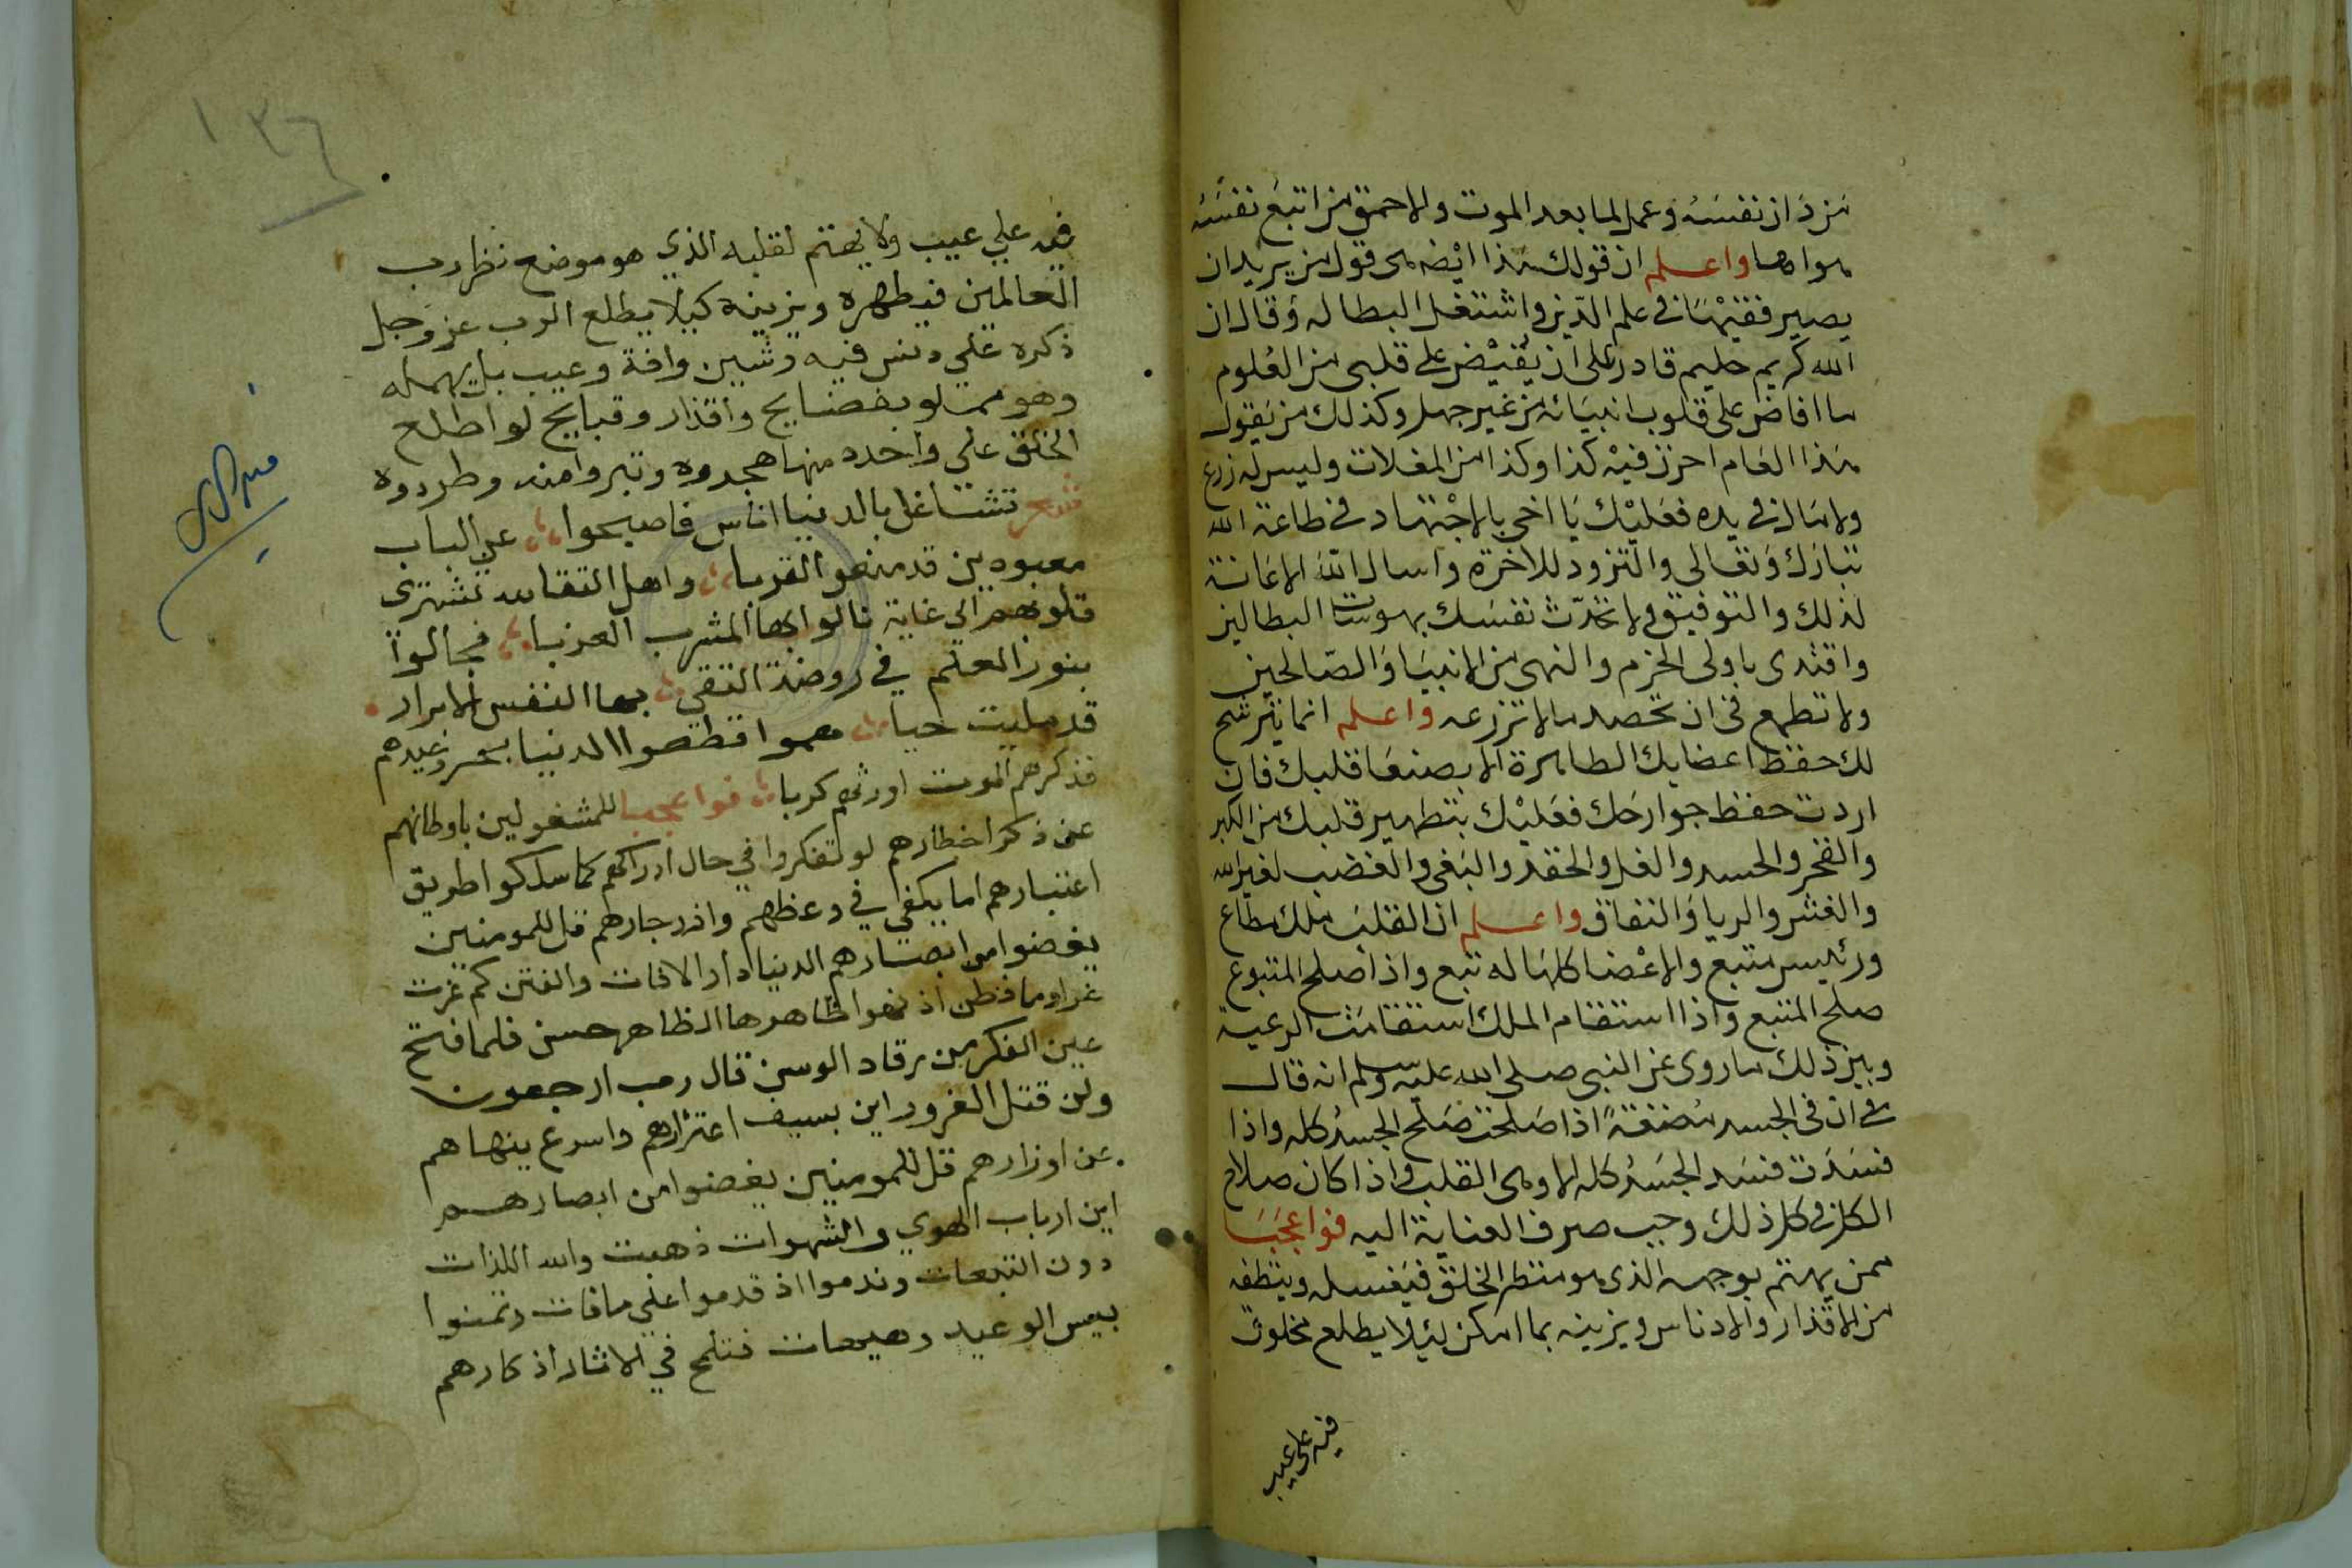 من دان نفسه وعمل لما بعد الموت والاحمق من اتبع نفسه
هواها واعلم ان قولك هذا ايضه هي قول من يريد ان
يصير فقيها في علم الدين واشتغل البطاله وقال ان
الله كريم حليم قادر على ان يفيض على قلبي من العلوم
ما افاض على قلوب انبيائه من غير جهل وكذلك من يقول
هذا العام احرز فيه كذا وكذا من الغلات وليس له زرع
ولا مال في يده فعليك يا اخي بالاجتهاد في طاعة الله
تبارك وتعالى والتزود للاخرة واسال الله الاعانة
لذلك والتوفيق ولا تحدث نفسك بهوسات البطالين
واقتدي باولى الحزم والنهى من الانبيا والصالحين
ولا تطمع في ان تحصد ما لا تزرعه واعلم انما يترشح
لك حفظ اعضايك الطاهرة الا بصنعا قلبك فان
اردت حفظ جوارحك فعليك بتطهير قلبك من الكبر
والفخر والحسد والغل والحقد والبغي والغضب لغير الله
والغش والريا والنفاق واعلم ان القلب ملك مطاع
ورئيس متبع والاعضا كلها له تبع واذا صلح المتبوع
صلح المتبع واذا استقام الملك استقامت الرعية
وبين ذلك ما روى عن النبي صلى الله عليه وسلم انه قال
ان في الجسد مضغة اذا صلحت صلح الجسد كله واذا
فسدت فسد الجسد كله الا وهي القلب واذا كان صلاح
الكل في كل ذلك وجب صرف العناية اليه فواعجبا
ممن يهتم بوجهه الذي هو منظر الخلق فيغسله وينظفه
من الاقذار والادناس ويزينه بما امكن ليلا يطلع مخلوق
فيه على عيب
١٣٦
فيه علي عيب ولا يهتم لقلبه الذي هو موضع نظر رب
العالمين فيطهره ويزينه كيلا يطلع الرب عز وجل
ذكره علي دنس فيه وشين وافة وعيب بل يهمله
وهو مملو بفضايح واقذار وقبايح لو اطلع
الخلق علي واحدة منها هجروه وتبروا منه وطردوه
شعر تشاغل بالدنيا اناس فاصبحوا عن الباب
قد منعوا القربا واهل التقا
قلوبهم الى غاية نالوا بها المشرب العذبا فجالوا
بنور العلم في روضة التقى بها النفس الابرار
قد مليت حبا قطعوا الدنيا
فذكرهم الموت اورثهم كربا فواعجبا للمشغولين باوطانهم
عن ذكر اخطارهم لو تفكروا في حال كما سلكوا طريق
اعتبارهم اما يكفي في وعظهم وازدجارهم قل للمومنين
يغضوا من ابصارهم الدنيا دار الافات والفتن كم غرت
غرا وما فطن اذ ظاهرها الظاهر حسن فلما فتح
عين الفكر من رقاد الوسن قال رب ارجعون
ولن قتل الغرور اين بسيف اغترارهم واسرع ينهاهم
عن اوزارهم قل للمومنين يغضوا من ابصارهم
اين ارباب الهوي والشهوات ذهبت والله اللذات
دون التبعات وندموا اذ قدموا علي ما فات وتمنوا
الوعيد وهيهات فتلمح في الاثار اذكارهم